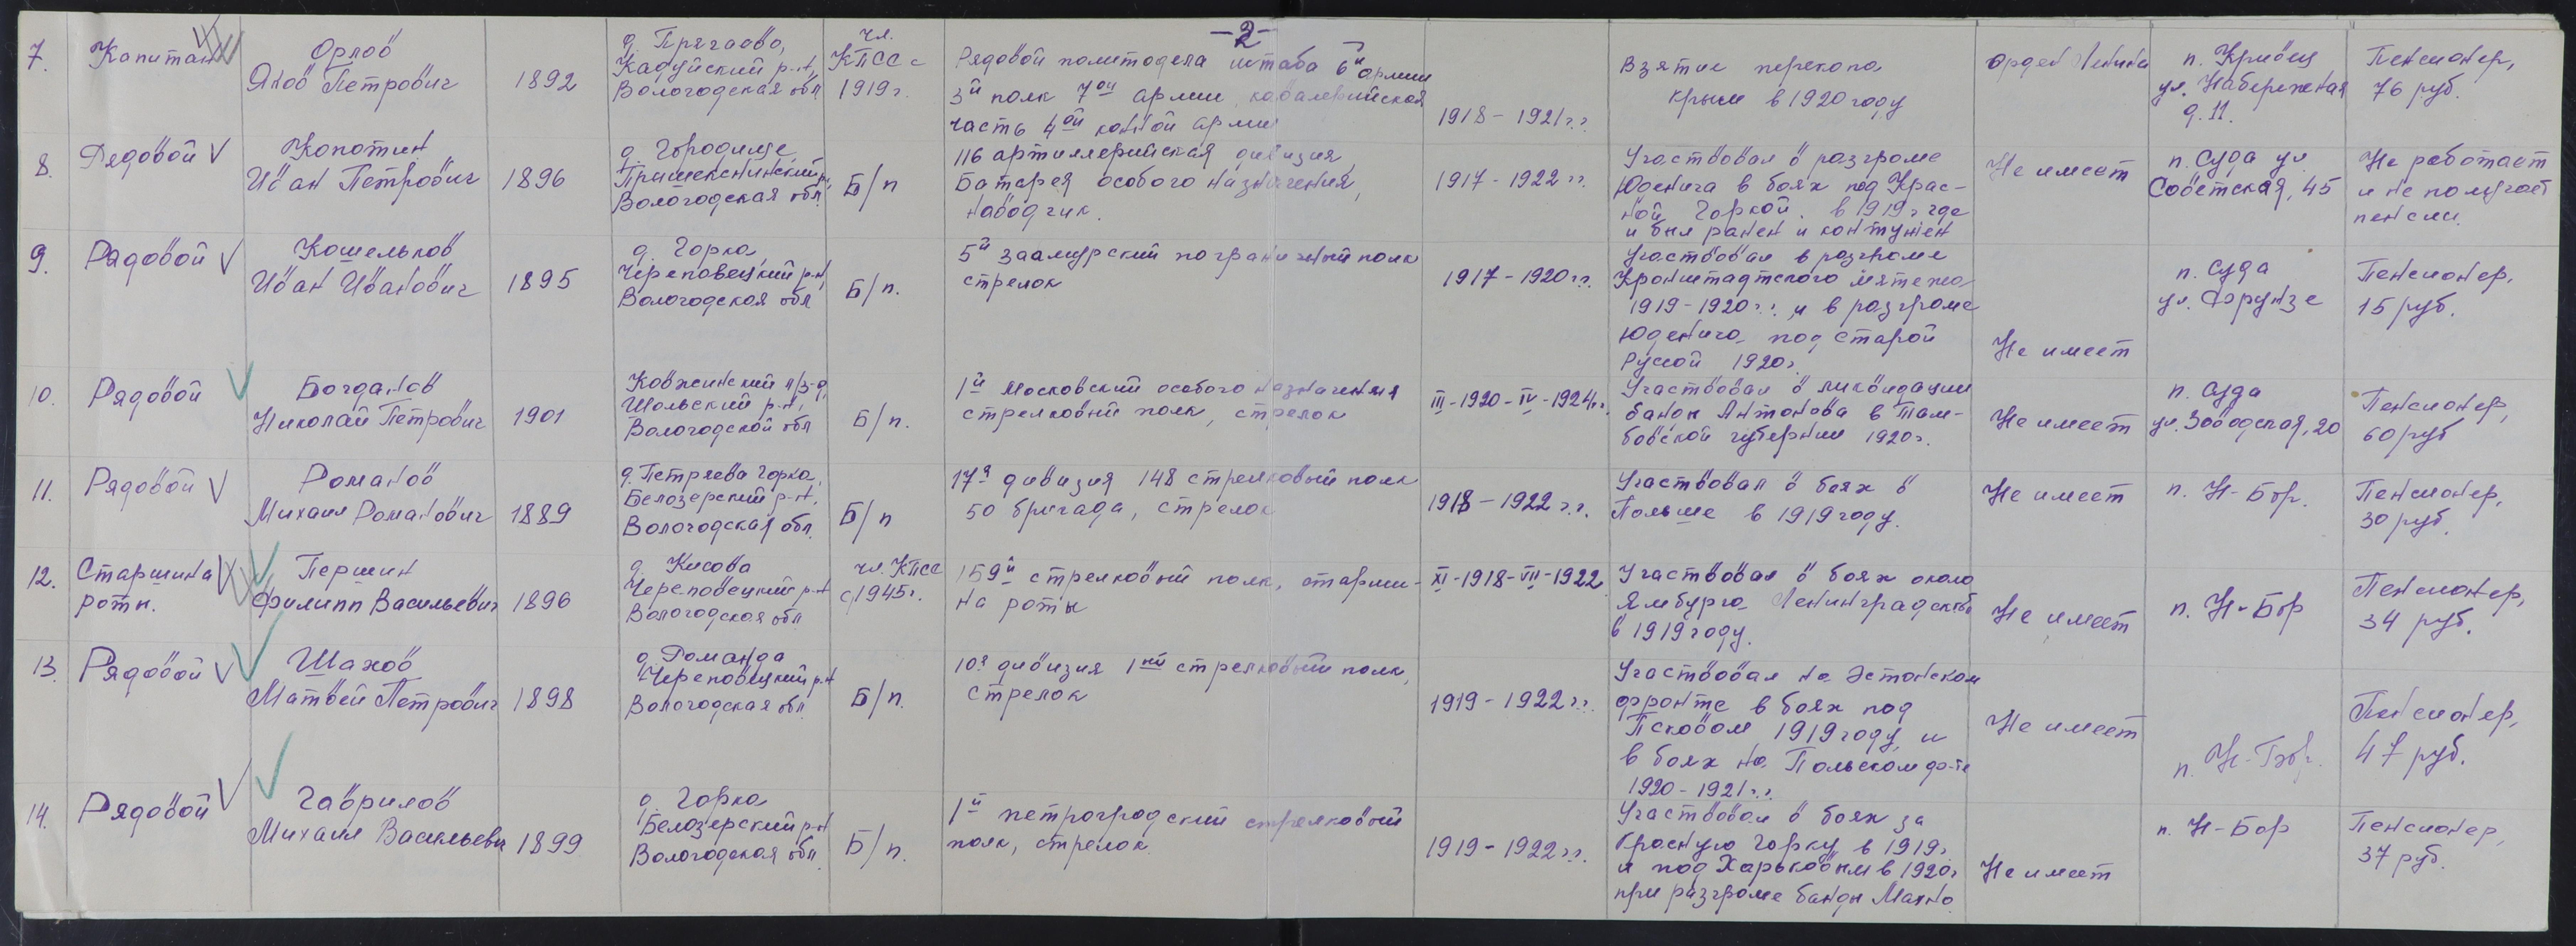 -2-
7.
Капитан
Орлов
Яков Петрович
1892
Кадуйский р-н,
Вологодская обл
чл.
КПСС с
1919 г.
Рядовой политодела штаба 6й армии
3й полк 7ой армии, кавалерийская
часть 4ой конной армии
1918 - 1921 г.г.
Взятие перекопа
крыма в 1920 году
Орден Ленина
п. Кривец
ул. Набережная
д. 11.
Пенсионер,
76 руб.
8.
Рядовой
Копотин
Иван Петрович
1896
д. Городище
Вологодская обл.
Б/п
116 артиллерийская дивизия,
Батарея особого назначения,
наводчик.
1917 - 1922 г.г.
Участвовал в разгроме
Юденича в боях под Крас-
ной Горкой. в 1919 г где
и был ранен и контужен
Не имеет
п. Суда ул
Советская, 45
Не работает
и не получает
пенсии.
9.
Рядовой
Кошельков
Иван Иванович
1895
д. Горка
Череповецкий р-н,
Вологодская обл
Б/п.
5й Заамурский пограничный полк
стрелок
1917 - 1920 г.г.
Участвовал в разгроме
Кронштадтского мятежа
1919 - 1920 г.г. и в разгроме
Юденича под Старой
Руссой 1920 г.
Не имеет
п. Суда
ул. Фрунзе
Пенсионер,
15 руб.
10.
Рядовой
Богданов
Николай Петрович
1901
Ковжинский л/з-д,
Шольский р-н,
Вологодской обл
Б/п.
1й Московский особого назначения
стрелковый полк, стрелок
III-1920 - IV-1924 г.
Участвовал в ликвидации
банды Антонова в Там-
бовской губернии 1920 г.
Не имеет
п. Суда
ул. Заводская, 20
Пенсионер,
60 руб
11.
Рядовой
Романов
Михаил Романович
1889
д. Петряева Горка,
Белозерский р-н,
Вологодская обл.
Б/п
17я дивизия 148 стрелковый полк
50 бригада, стрелок
1918 - 1922 г.г.
Участвовал в боях в
Польше в 1919 году.
Не имеет
п. Н-Бор.
Пенсионер,
30 руб.
12.
Старшина
роты.
Першин
Филипп Васильевич
1896
д. Кисова
Череповецкий р-н
Вологодская обл
чл. КПСС
с 1945 г.
159й стрелковый полк, старши-
на роты
XI-1918 - VII-1922
Участвовал в боях около
Ямбурга
в 1919 году.
Не имеет
п. Н-Бор
Пенсионер,
34 руб.
13.
Рядовой
Шахов
Матвей Петрович
1898
д. Романда
Череповецкий р-н
Вологодская обл.
Б/п.
10я дивизия 1ый стрелковый полк,
стрелок
1919 - 1922 г.г.
Участвовал на Эстонском
фронте в боях под
Псковом 1919 году, и
в боях на Польском ф-те
1920 - 1921 г.г.
Не имеет
п. Н-Бор.
Пенсионер,
47 руб.
14.
Рядовой
Гаврилов
Михаил Васильевич
1899
д. Горка
Белозерский р-н
Вологодская обл
Б/п.
1й петроградский стрелковый
полк, стрелок
1919 - 1922 г.г.
Участвовал в боях за
Красную Горку в 1919 г
и под Харьковым в 1920 г
при разгроме банды Махно
Не имеет
п. Н-Бор
Пенсионер,
37 руб.